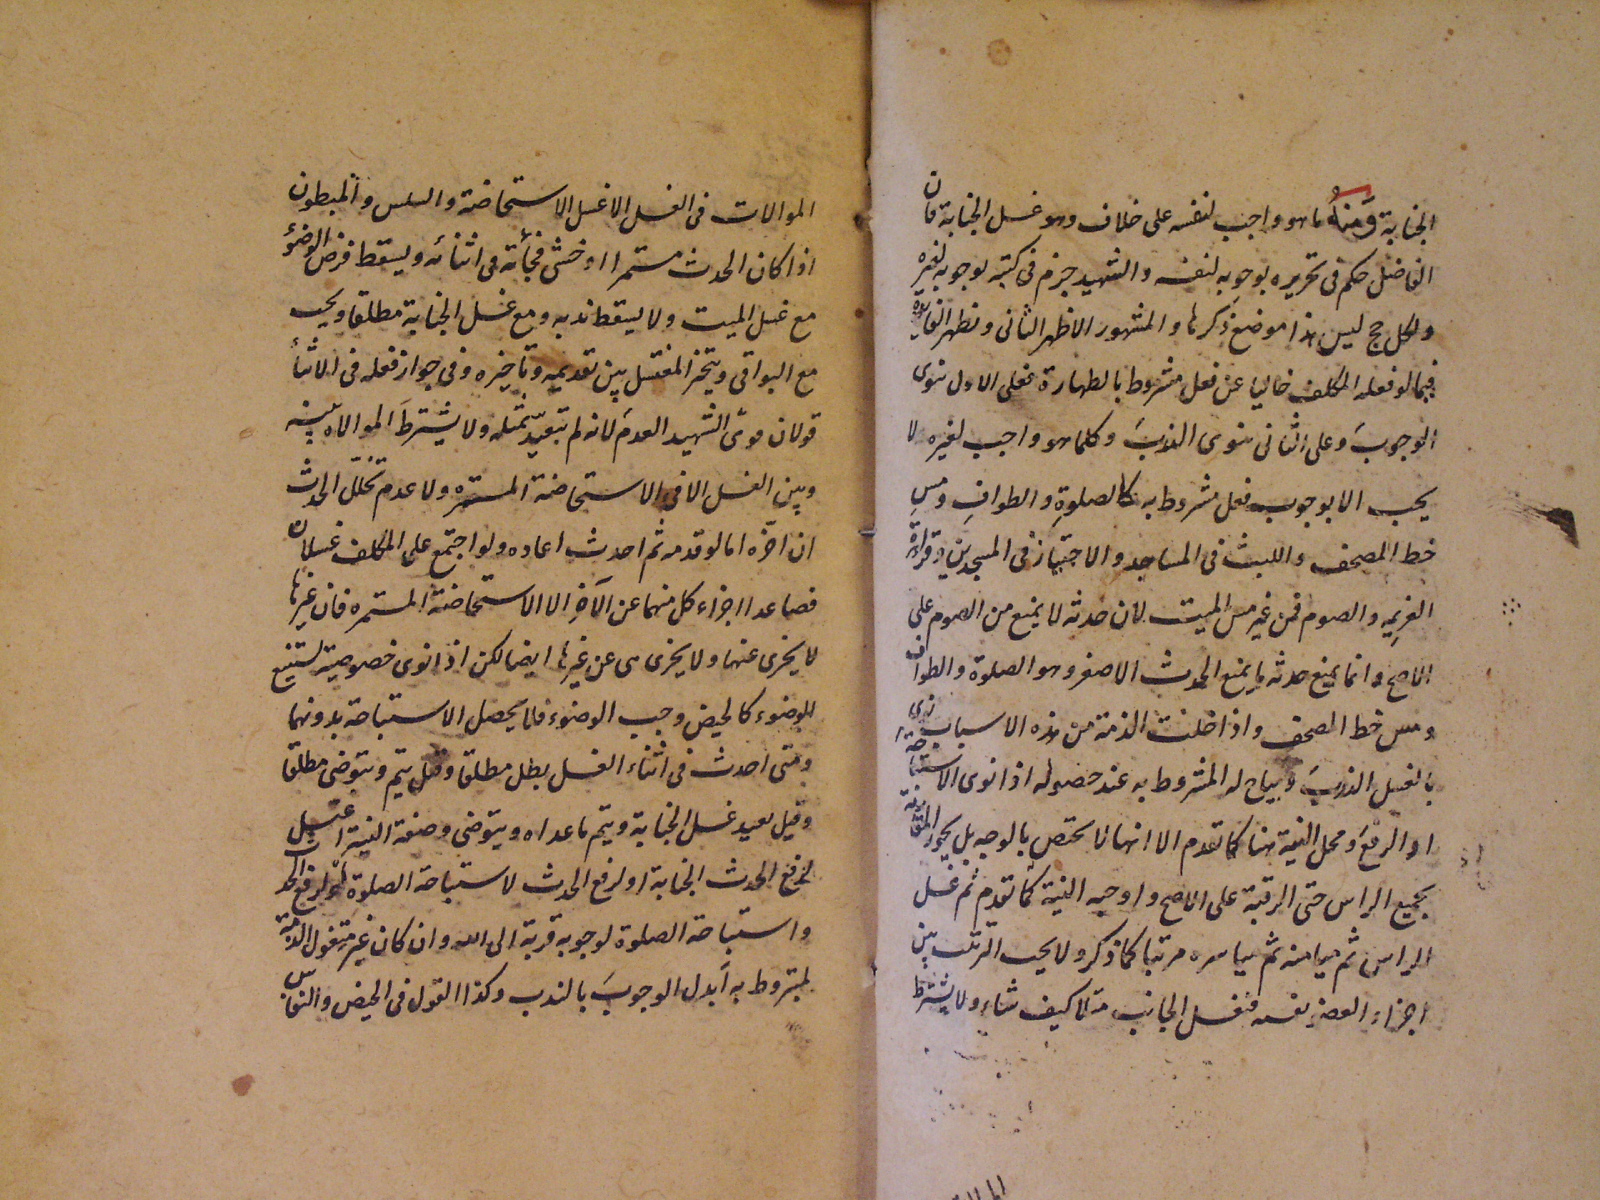 الجنابة ومنه ما هو واجب لنفسه على خلاف وهو غسل الجنابة فان
الفاضل حكم فى تحريره بوجوبه لنفسه والشهيد جزم فى كتبه بوجوبه لغيره
ولكل حج ليس هذا موضع ذكرها والمشهور الاظهر الثانى وتظهر الفايدة
فيما لو فعله المكلف خاليا عن فعل مشروط بالطهارة فعلى الاول ينوى
الوجوب وعلى الثانى ينوى الندب وكلما هو واجب لغيره لا
يجب الا بوجوب فعل مشروط به كالصلوة والطواف ومس
خط المصحف واللبث فى المساجد والاجتياز فى المسجدين وقراءة
العزيمه والصوم فمن غير مس الميت لان حدثه لا يمنع من الصوم على
الاصح وانما يمنع حدثه ما يمنع الحدث الاصغر وهو الصلوة والطواف
ومس خط المصحف واذا خلت الذمة من هذه الاسباب نوى
بالغسل الندب ويباح له المشروط به عند حصوله اذا نوى الاستباحة
او الرفع ومحل النية هنا كما تقدم الا انها لا يختص بالوجه بل يجوز المقارنة
بجميع الراس حتى الرقبة على الاصح واوجبه النية كما تقدم ثم غسل
الراس ثم ميامنه ثم مياسره مرتبا كما ذكر ولا يجب الترتيب بين
اجزاء العضو نفسه فيغسل الجانب مثلا كيف شاء ولا يشترط
الموالات فى الغسل الا غسل الاستحاضة والسلس والمبطون
اذا كان الحدث مستمرا او خشى فجأته فى اثنائه ويسقط فرض الوضوء
مع غسل الميت ولا يسقط ندبه ومع غسل الجنابة مطلقا ويجب
مع البواقى ويتخير المغتسل بين تقديمه وتاخيره وفى جواز فعله فى الاثنا
قولان قوى الشهيد العدم لانه لم يتعبد بمثله ولا يشترط الموالاه بينه
وبين الغسل الا فى الاستحاضة المستمره ولا عدم تخلل الحدث
ان اخره اما لو قدمه ثم احدث اعاده ولو اجتمع على المكلف غسلان
فصاعدا اجزاء كل منهما عن الآخر الا الاستحاضة المستمره فان غيرها
لا يجزى عنها ولا يجزى هى عن غيرها ايضا لكن اذا نوى خصوصية لستتبع
للوضوء كالحيض وجب الوضوء فلا يحصل الاستباحة بدونهما
ومتى احدث فى اثناء الغسل بطل مطلقا وقيل يتم ويتوضى مطلقا
وقيل يعيد غسل الجنابة ويتم ما عداه ويتوضى وصفة النية اغتسل
لرفع الحدث الجنابة او لرفع الحدث لاستباحة الصلوة او لرفع الحدث
واستباحة الصلوة لوجوبه قربة الى الله وان كان غير مشغول الذمة
بمشروط به ابدل الوجوب بالندب وكذا القول فى الحيض والنفاس